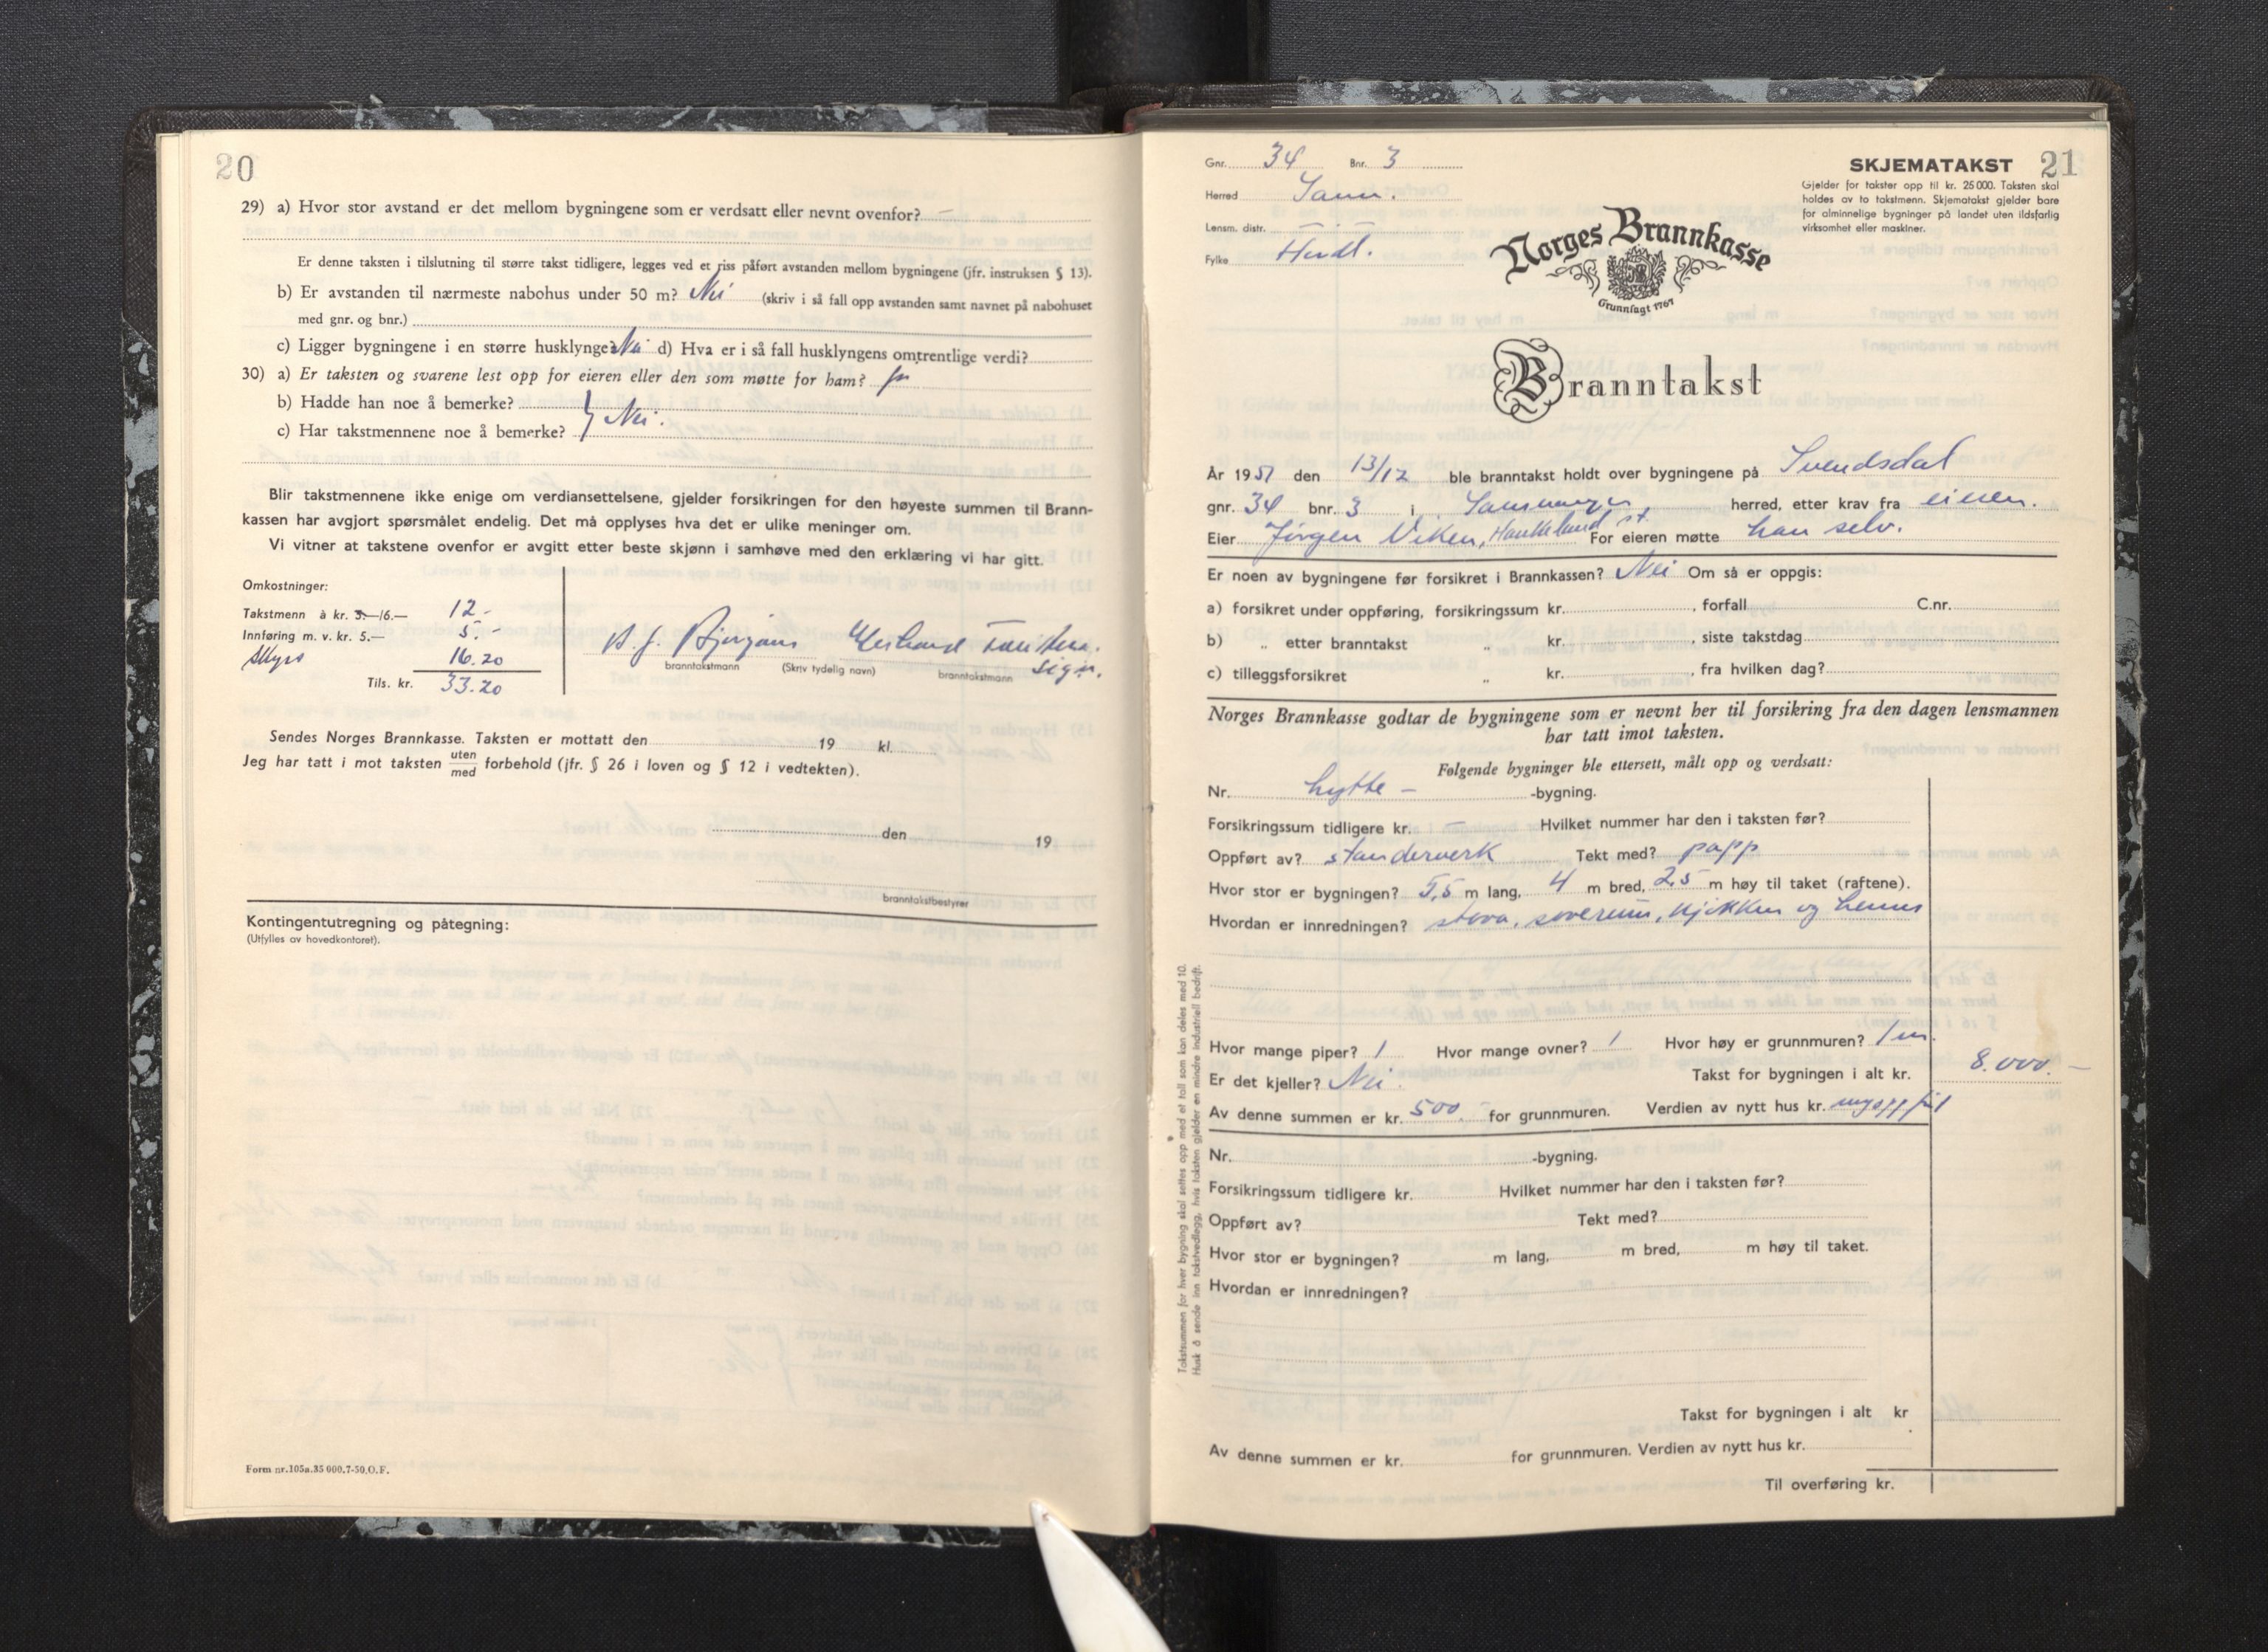 20
29) a) Hvor stor avstand er det mellom bygningene som er verdsatt eller nevnt ovenfor? —
Er denne taksten i tilslutning til større takst tidligere, legges ved et riss påført avstanden mellom bygningene (jfr. instruksen § 13).
b) Er avstanden til nærmeste nabohus under 50 m? Nei (skriv i så fall opp avstanden samt navnet på nabohuset
med gnr. og bnr.)
c) Ligger bygningene i en større husklynge? Nei d) Hva er i så fall husklyngens omtrentlige verdi?
30) a) Er taksten og svarene lest opp for eieren eller den som møtte for ham? ja
b) Hadde han noe å bemerke?
c) Har takstmennene noe å bemerke? } Nei.
Blir takstmennene ikke enige om verdiansettelsene, gjelder forsikringen for den høyeste summen til Brann-
kassen har avgjort spørsmålet endelig. Det må opplyses hva det er ulike meninger om.
Vi vitner at takstene ovenfor er avgitt etter beste skjønn i samhøve med den erklæring vi har gitt.
Omkostninger:
Takstmenn à kr. 3—/6.— 12.-
Innføring m. v. kr. 5.— 5.-
Skyss 16.20
Tils. kr. 33.20
branntakstmann (Skriv tydelig navn) branntakstmann sign.
Sendes Norges Brannkasse. Taksten er mottatt den 19 kl.
Jeg har tatt i mot taksten uten/med forbehold (jfr. § 26 i loven og § 12 i vedtekten).
den 19
branntakstbestyrer
Kontingentutregning og påtegning:
(Utfylles av hovedkontoret).
Form nr.105a.35 000.7-50.O.F.
Gnr. 34 Bnr. 3
Herred Samn.
Lensm. distr. —
Fylke Hordl.
SKJEMATAKST 21
Gjelder for takster opp til kr. 25 000. Taksten skal
holdes av to takstmenn. Skjematakst gjelder bare
for alminnelige bygninger på landet uten ildsfarlig
virksomhet eller maskiner.
Norges Brannkasse
Grunnlagt 1767
Branntakst
År 1951 den 13/12 ble branntakst holdt over bygningene på Svendsdal
gnr. 34 bnr. 3 i Samnanger herred, etter krav fra eieren.
Eier Jørgen Viken, Haukeland st. For eieren møtte han selv.
Er noen av bygningene før forsikret i Brannkassen? Nei Om så er oppgis:
a) forsikret under oppføring, forsikringssum kr. , forfall C.nr.
b) „ etter branntakst „ kr. , siste takstdag
c) tilleggsforsikret „ kr. , fra hvilken dag?
Norges Brannkasse godtar de bygningene som er nevnt her til forsikring fra den dagen lensmannen
har tatt imot taksten.
Følgende bygninger ble ettersett, målt opp og verdsatt:
Nr. hytte — -bygning.
Forsikringssum tidligere kr. — Hvilket nummer har den i taksten før?
Oppført av? standerverk Tekt med? papp
Hvor stor er bygningen? 5,5 m lang, 4 m bred, 2,5 m høy til taket (raftene).
Hvordan er innredningen? stova, soverum, kjøkken og hems
Hvor mange piper? 1 Hvor mange ovner? 1 Hvor høy er grunnmuren? 1 m.
Er det kjeller? Nei. Takst for bygningen i alt kr. 8.000.—
Av denne summen er kr. 500.- for grunnmuren. Verdien av nytt hus kr. nyoppført
Nr. -bygning.
Forsikringssum tidligere kr. Hvilket nummer har den i taksten før?
Oppført av? Tekt med?
Hvor stor er bygningen? m lang, m bred, m høy til taket.
Hvordan er innredningen?
Takst for bygningen i alt kr
Av denne summen er kr. for grunnmuren. Verdien av nytt hus kr.
Til overføring kr.
Takstsummen for hver bygning skal settes opp med et tall som kan deles med 10.
Husk å sende inn takstvedlegg, hvis taksten gjelder en mindre industriell bedrift.